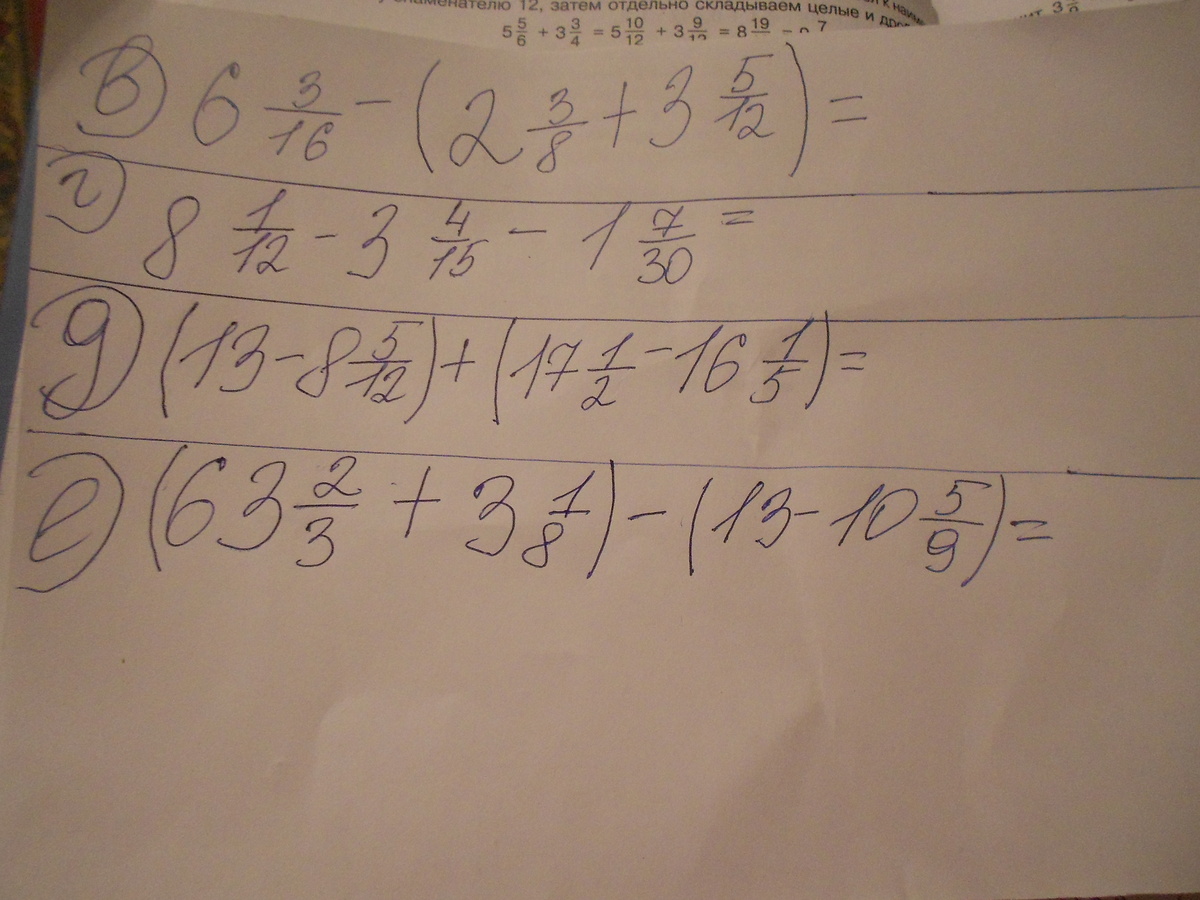 знаменателю 12, затем отдельно складываем целые и
5 5/6 + 3 3/4 = 5 10/12 + 3 9/12 = 8 19
в) 6 3/16 - (2 3/8 + 3 5/12) =
г) 8 1/12 - 3 4/15 - 1 7/30 =
д) (13 - 8 5/12) + (17 1/2 - 16 1/5) =
е) (63 2/3 + 3 1/8) - (13 - 10 5/9) =